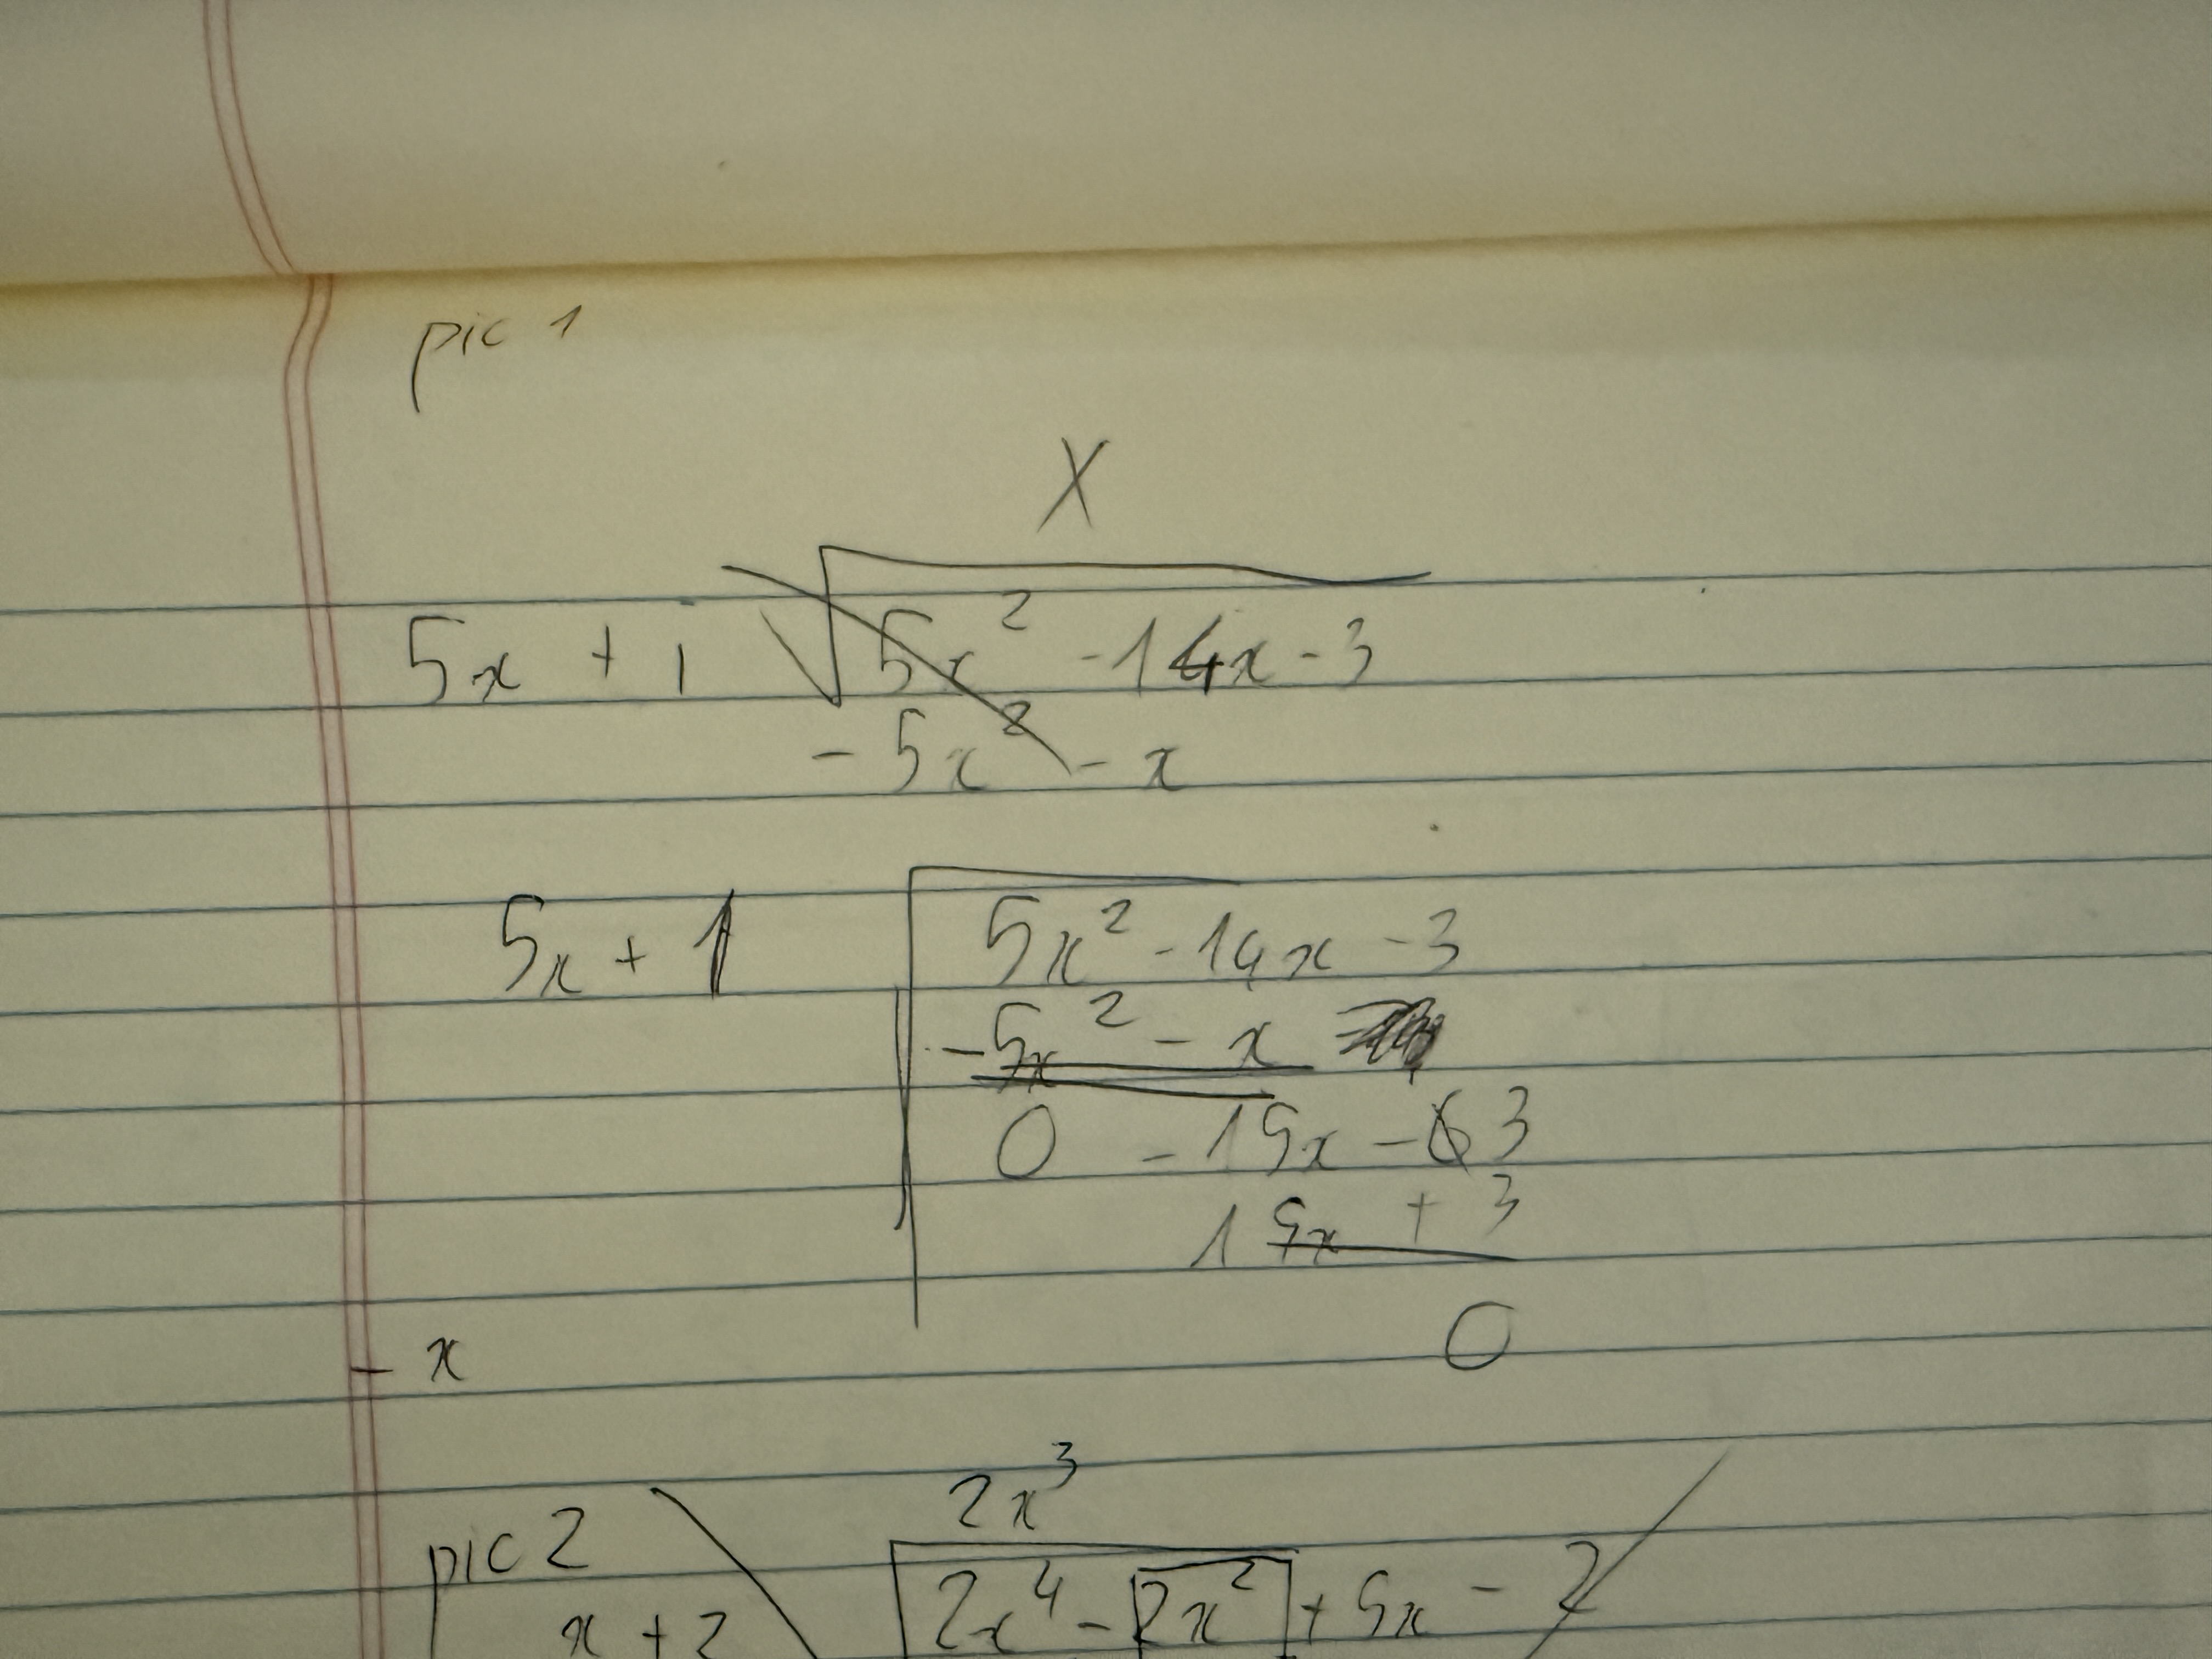 pic 1
X
5x + 1 5x² - 14x - 3
- 5x² - x
5x + 1 5x² - 14x - 3
- 5x² - x
0 - 15x - 3
15x + 3
- x 0
pic 2
2x³
x + 2 2x⁴ - x² + 5x - 2